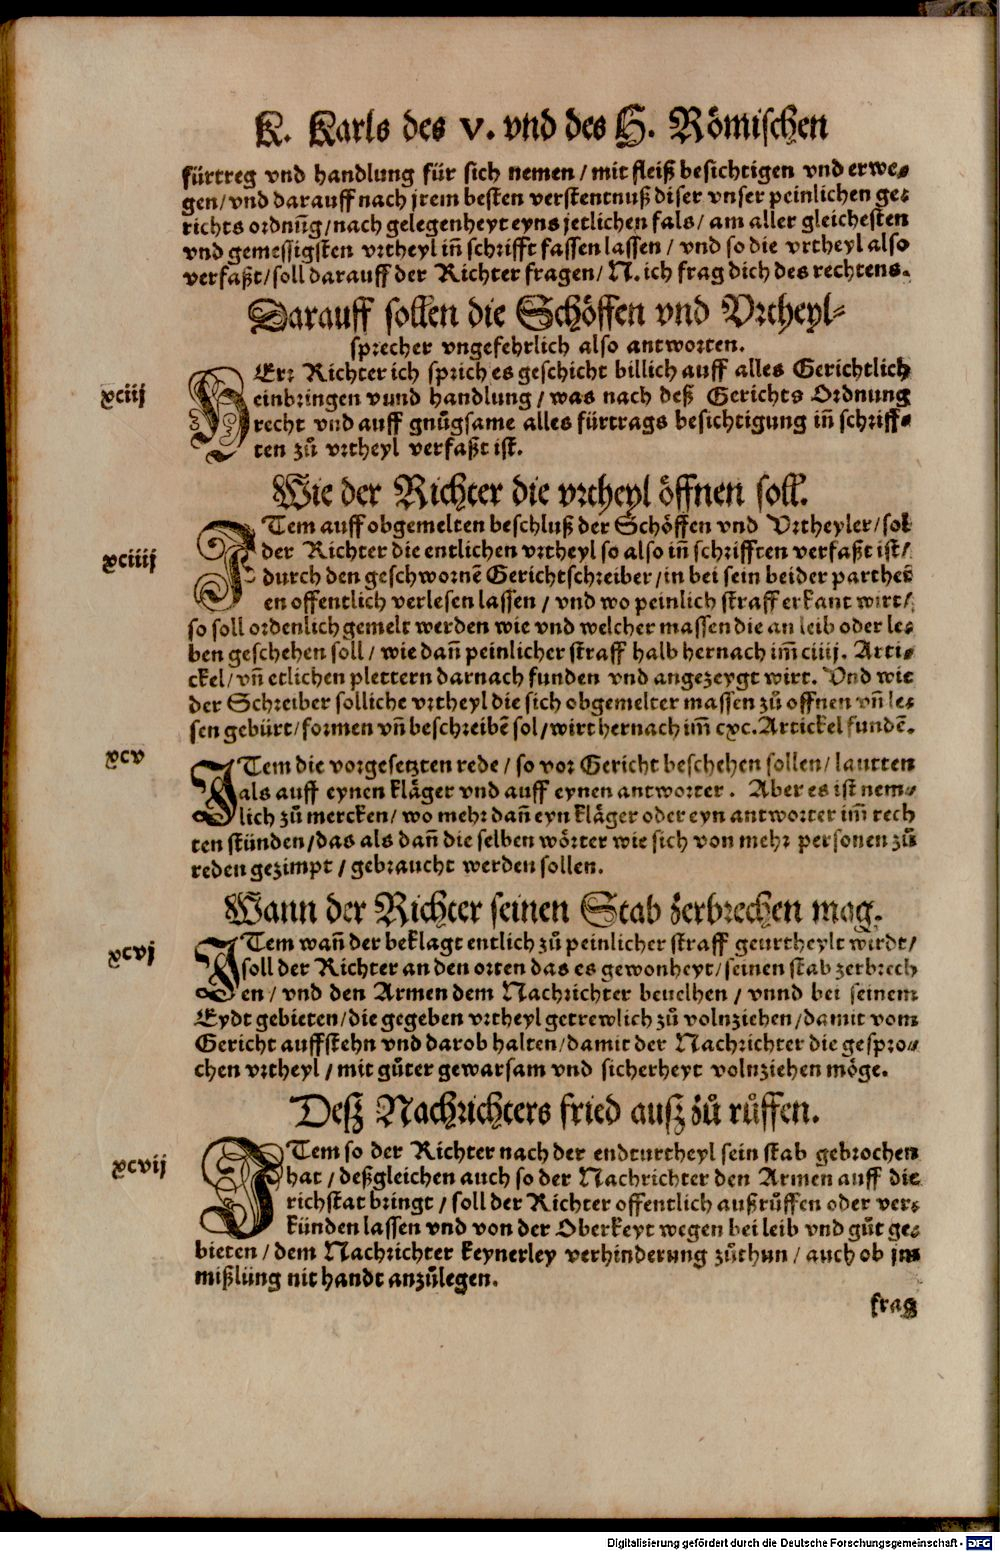 K. Karls des V. vnd des H. Römischen
fürtreg vnd handlung für sich nemen / mit fleiß besichtigen vnd erwe-
gen / vnd darauff nach jrem besten verstentnuß diser vnser peinlichen ge-
richts ordnūg / nach gelegenheyt eyns jetlichen fals / am aller gleichesten
vnd gemessigsten vrtheyl iñ schrifft fassen lassen / vnd so die vrtheyl also
verfaßt / soll darauff der Richter fragen / N. ich frag dich des rechtens.
Darauff sollen die Schöffen vnd Vrtheyl-
sprecher vngefehrlich also antworten.
xciij
HErr Richter ich sprich es geschicht billich auff alles Gerichtlich
einbringen vund handlung / was nach deß Gerichts Ordnung
recht vnd auff gnůgsame alles fürtrags besichtigung iñ schriff-
ten zů vrtheyl verfaßt ist.
Wie der Richter die vrtheyl öffnen soll.
xciiij
ITem auff obgemelten beschluß der Schöffen vnd Vrtheyler / sol
der Richter die entlichen vrtheyl so also iñ schrifften verfaßt ist /
durch den geschwornē Gerichtschreiber / in bei sein beider partheē
en offentlich verlesen lassen / vnd wo peinlich straff erkant wirt /
so soll ordenlich gemelt werden wie vnd welcher massen die an leib oder le-
ben geschehen soll / wie dañ peinlicher straff halb hernach im̃ ciiij. Arti-
ckel / vñ etlichen plettern darnach funden vnd angezeygt wirt. Vnd wie
der Schreiber solliche vrtheyl die sich obgemelter massen zů offnen vñ le-
sen gebürt / formen vñ beschreibē sol / wirt hernach im̃ cxc. Artickel fundē.
xcv
ITem die vorgesetzten rede / so vor Gericht beschehen sollen / lautten
als auff eynen kläger vnd auff eynen antworter. Aber es ist nem-
lich zů mercken / wo mehr dañ eyn kläger oder eyn antworter im̃ rech
ten stünden / das als dañ die selben wörter wie sich von mehr personen zů
reden gezimpt / gebraucht werden sollen.
Wann der Richter seinen Stab zerbrechen mag.
xcvj
ITem wañ der beklagt entlich zů peinlicher straff geurtheylt wirdt /
soll der Richter an den orten das es gewonheyt / seinen stab zerbrech
en / vnd den Armen dem Nachrichter beuelhen / vnnd bei seinem
Eydt gebieten / die gegeben vrtheyl getrewlich zů volnziehen / damit vom
Gericht auffstehn vnd darob halten / damit der Nachrichter die gespro-
chen vrtheyl / mit gůter gewarsam vnd sicherheyt volnziehen möge.
Desz Nachrichters fried ausz zů růffen.
xcvij
ITem so der Richter nach der endturtheyl sein stab gebrochen
hat / deßgleichen auch so der Nachrichter den Armen auff die
richstat bringt / soll der Richter offentlich außrůffen oder ver-
künden lassen vnd von der Oberkeyt wegen bei leib vnd gůt ge-
bieten / dem Nachrichter keynerley verhinderung zůthun / auch ob jm
mißlüng nit handt anzůlegen.
frag
Digitalisierung gefördert durch die Deutsche Forschungsgemeinschaft - DFG